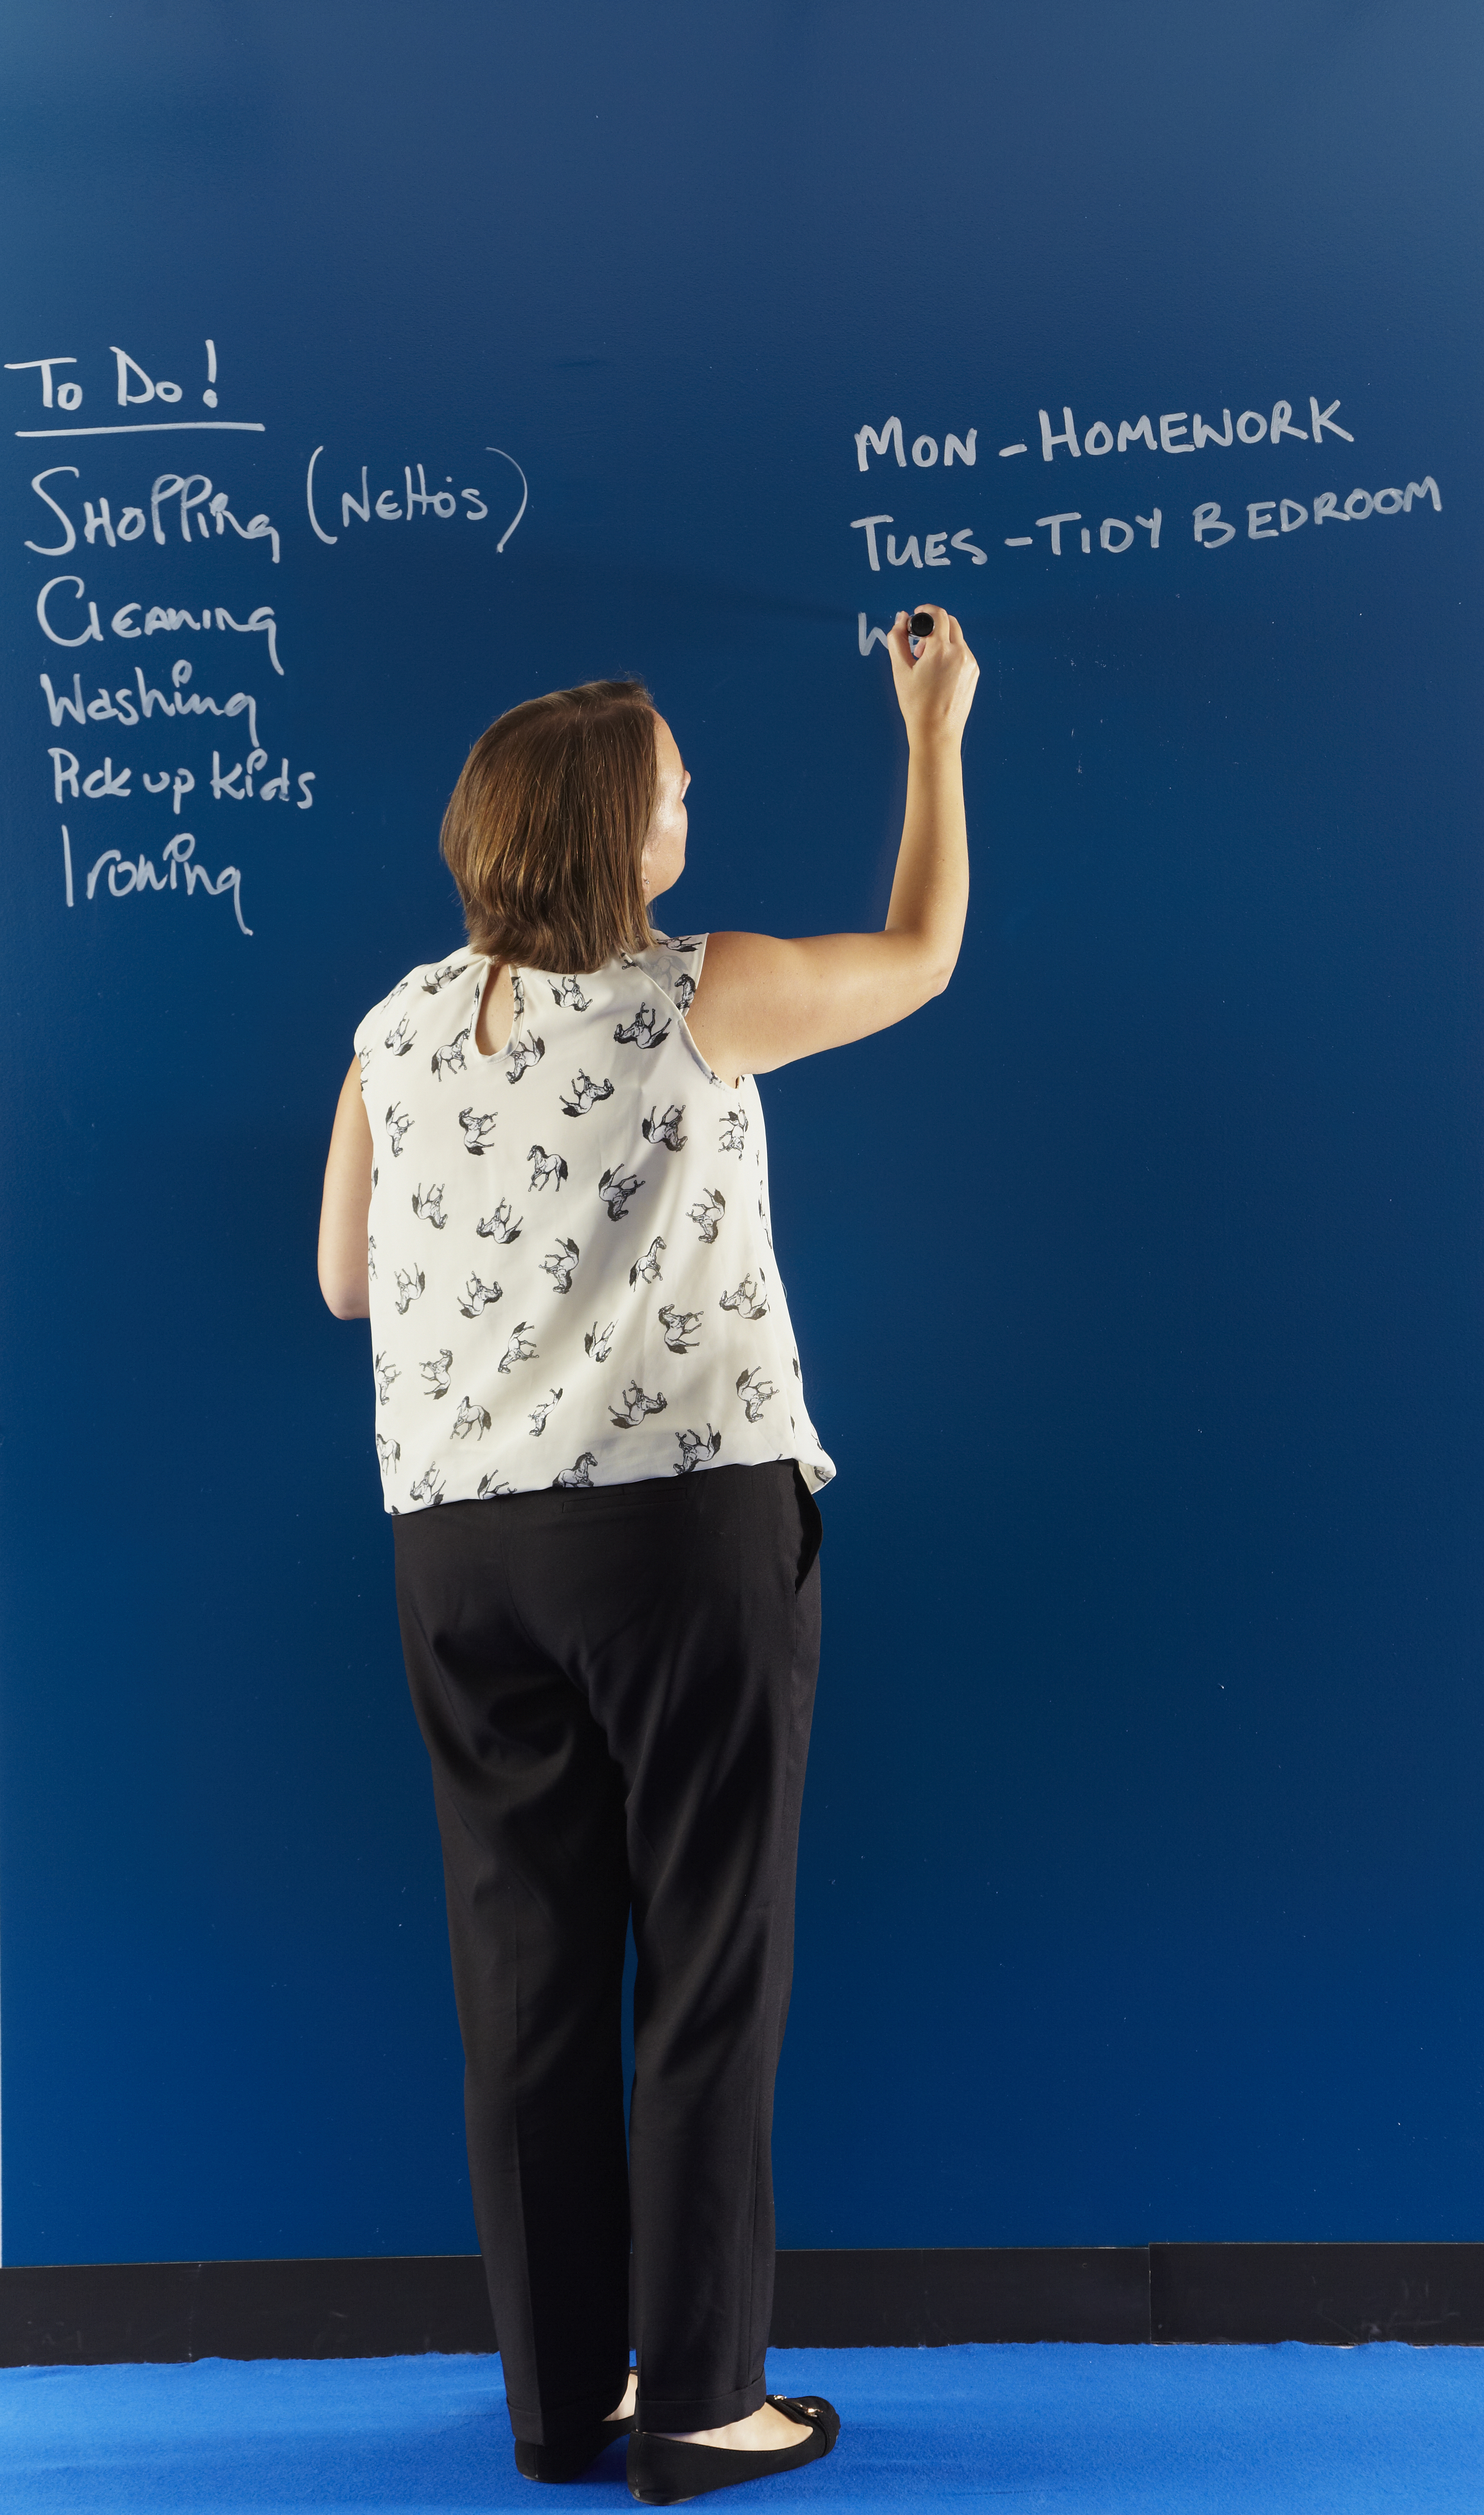 To Do!
SHOPPING (NEttó's)
CLEANING
Washing
Pick up kids
Ironing
MON - HOMEWORK
TUES - TIDY BEDROOM
W